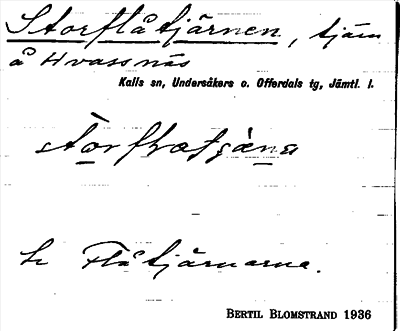 Storflåtjärnen, tjärn
å Hvassnäs
Kalls sn, Undersåkers o. Offerdals tg, Jämtl. l.
Se Flåtjärnarna.
BERTIL BLOMSTRAND 1936